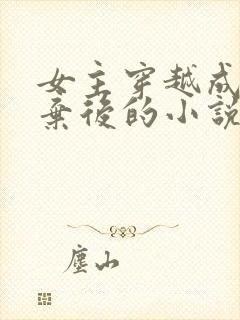 女主穿越成
棄後的小說
塵山